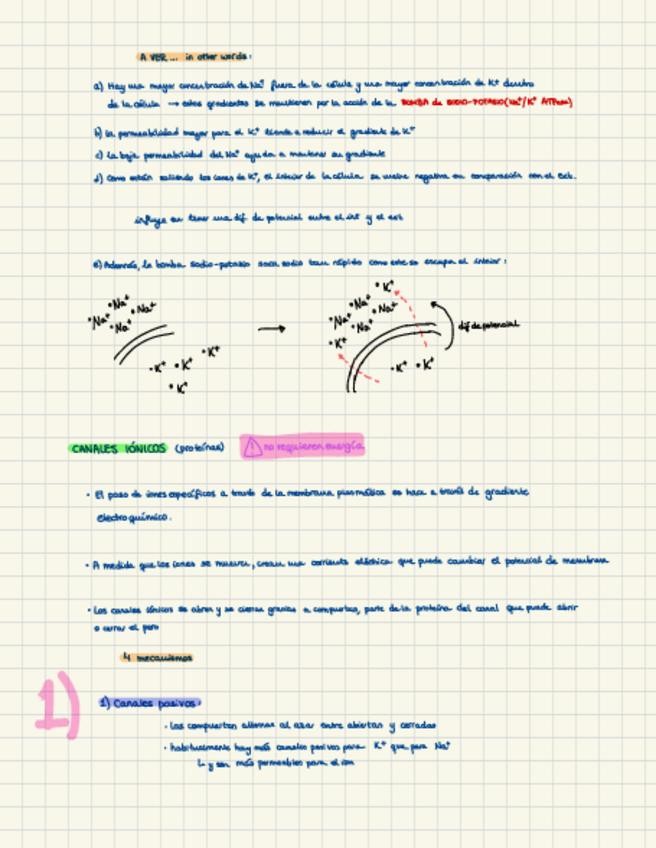 A VER... in other words:
a) Hay una mayor concentración de Na⁺ fuera de la célula y una mayor concentración de K⁺ dentro
de la célula → estos gradientes se mantienen por la acción de la BOMBA de SODIO-POTASIO (Na⁺/K⁺ ATPasa)
b) la permeabilidad mayor para el K⁺ tiende a reducir el gradiente de K⁺
c) la baja permeabilidad del Na⁺ ayuda a mantener su gradiente
d) Como están saliendo los iones de K⁺, el interior de la célula se vuelve negativa en comparación con el Ext.
influye en tener una dif. de potencial entre el int y el ext
e) Además, la bomba sodio-potasio saca sodio tan rápido como este se escapa al interior:
•Na⁺ •Na⁺ •Na⁺ •Na⁺
•K⁺ •K⁺ •K⁺ •K⁺
→
•K⁺ •Na⁺ •Na⁺ •Na⁺ •Na⁺ •K⁺
•K⁺ •K⁺
dif de potencial
CANALES IÓNICOS (proteínas) ! no requieren energía
• El paso de iones específicos a través de la membrana plasmática se hace a través de gradiente
electroquímico.
• A medida que los iones se mueven, crean una corriente eléctrica que puede cambiar el potencial de membrana
• Los canales iónicos se abren y se cierran gracias a compuertas, parte de la proteína del canal que puede abrir
o cerrar el poro
4 mecanismos
1)
1) Canales pasivos:
• Las compuertas alternan al azar entre abiertas y cerradas
• habitualmente hay más canales pasivos para K⁺ que para Na⁺
↳ y son más permeables para el ion